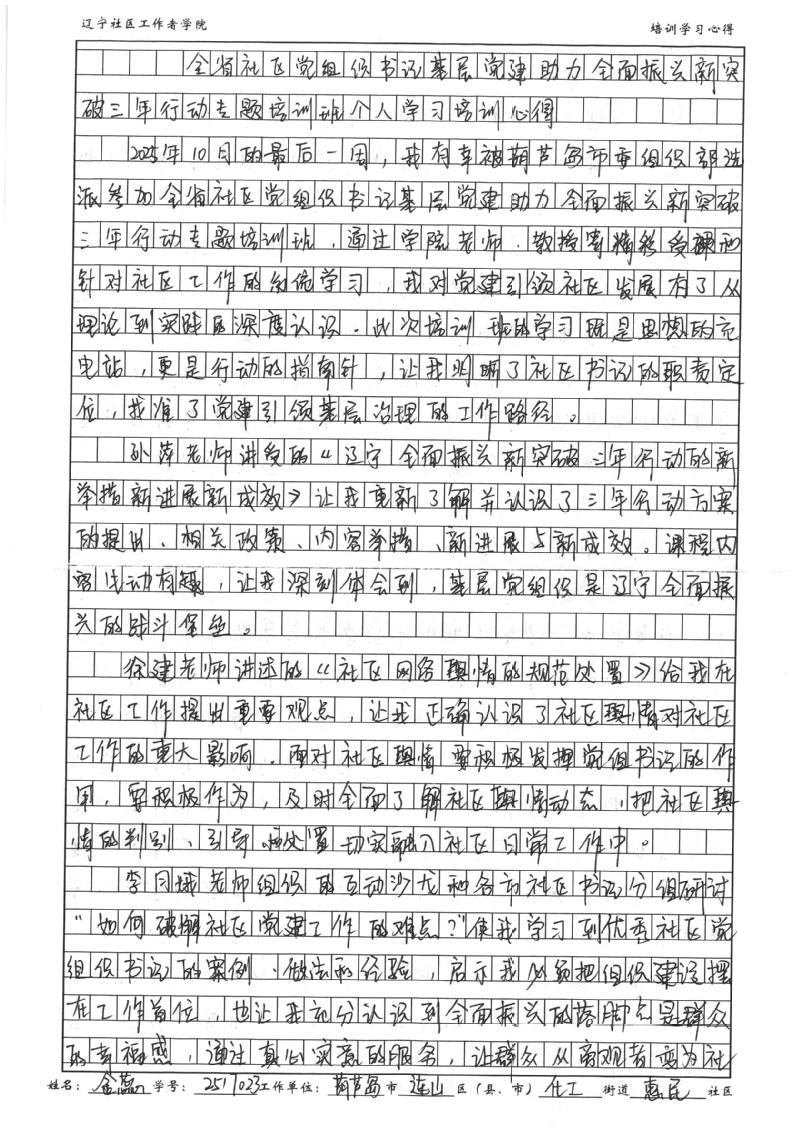 辽宁社区工作者学院 培训学习心得
全省社区党组织书记基层党建助力全面振兴新突
破三年行动专题培训班个人学习培训心得
2025年10月的最后一周,我有幸被葫芦岛市委组织部选
派参加全省社区党组织书记基层党建助力全面振兴新突破
三年行动专题培训班,通过学院老师、教授精彩授课和
针对社区工作的系统学习,我对党建引领社区发展有了从
理论到实践区深度认识。此次培训班的学习既是思想的充
电站,更是行动的指南针,让我明晰了社区书记的职责定
位,找准了党建引领基层治理的工作路径。
孙萍老师讲授的《辽宁全面振兴新突破三年行动的新
举措新进展新成效》让我重新了解并认识了三年行动方案
的提出、相关政策、内容举措、新进展与新成效。课程内
容生动有趣,让我深刻体会到,基层党组织是辽宁全面振
兴的战斗堡垒。
徐建老师讲述的《社区网络舆情的规范处置》给我在
社区工作提出重要观点,让我正确认识了社区舆情对社区
工作的重大影响。面对社区舆情要积极发挥党组书记的作
用,要积极作为,及时全面了解社区舆情动态,把社区舆
情的判别、引导和处置切实融入社区日常工作中。
李月娥老师组织的互动沙龙和各市社区书记分组研讨
“如何破解社区党建工作的难点?”使我学习到优秀社区党
组织书记的案例、做法和经验,启示我必须把组织建设摆
在工作首位,也让我充分认识到全面振兴的落脚点是群众
的幸福感,通过真心实意的服务,让群众从旁观者变为社
姓名:金磊 学号:2517023 工作单位:葫芦岛 市 连山 区(县、市) 化工 街道 惠民 社区